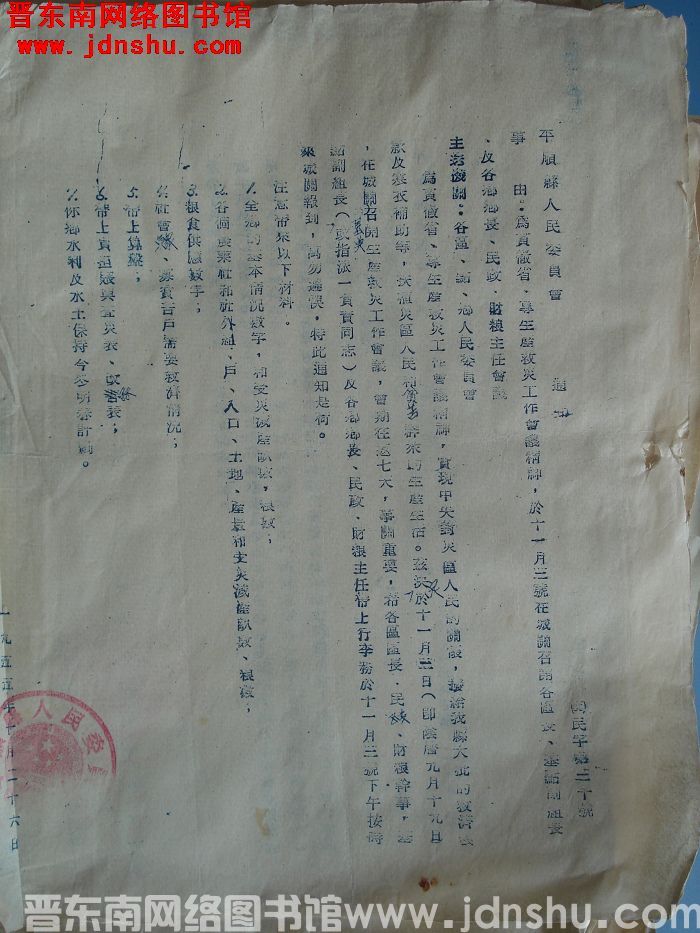 晋东南网络图书馆
www.jdnshu.com
平順縣人民委員會 通知
民字第二十號
事 由：為貫徹省、專生產救災工作會議精神，於十一月三號在城關召開各區長、基點副組長
、及各鄉鄉長、民政、財粮主任會議
主送機關：各區、鎮、鄉人民委員會
為貫徹省、專生產救災工作會議精神，實現中央對災區人民的關懷，撥給我縣大批的救濟
款及寒衣補助等，扶植災區人民和貧苦群眾的生產生活。茲決於十一月三日（即陰曆九月十九日
，在城關召開生產救災工作會議，會期在六七天，事關重要，希各區區長、民政、財粮幹事，基
點副組長（或指派一負責同志）及各鄉鄉長、民政、財粮主任帶上行李務於十一月三號下午按時
來城關報到，萬勿遲悮，特此通知是荷。
注意帶來以下材料。
1.全鄉的基本情况数字，和受災減產队数，粮数；
2.各個農業社和社外組、戶、人口、土地、產量和受災減產队数、粮数；
3.粮食供應数字；
4.社會、貧苦戶需要救濟情况；
5.帶上算盤；
6.帶上負担賬與查災表、表；
7.你鄉水利及水土保持今冬明春計劃。
一九五五年十月二十六日
縣人民委員
晋东南网络图书馆 www.jdnshu.com